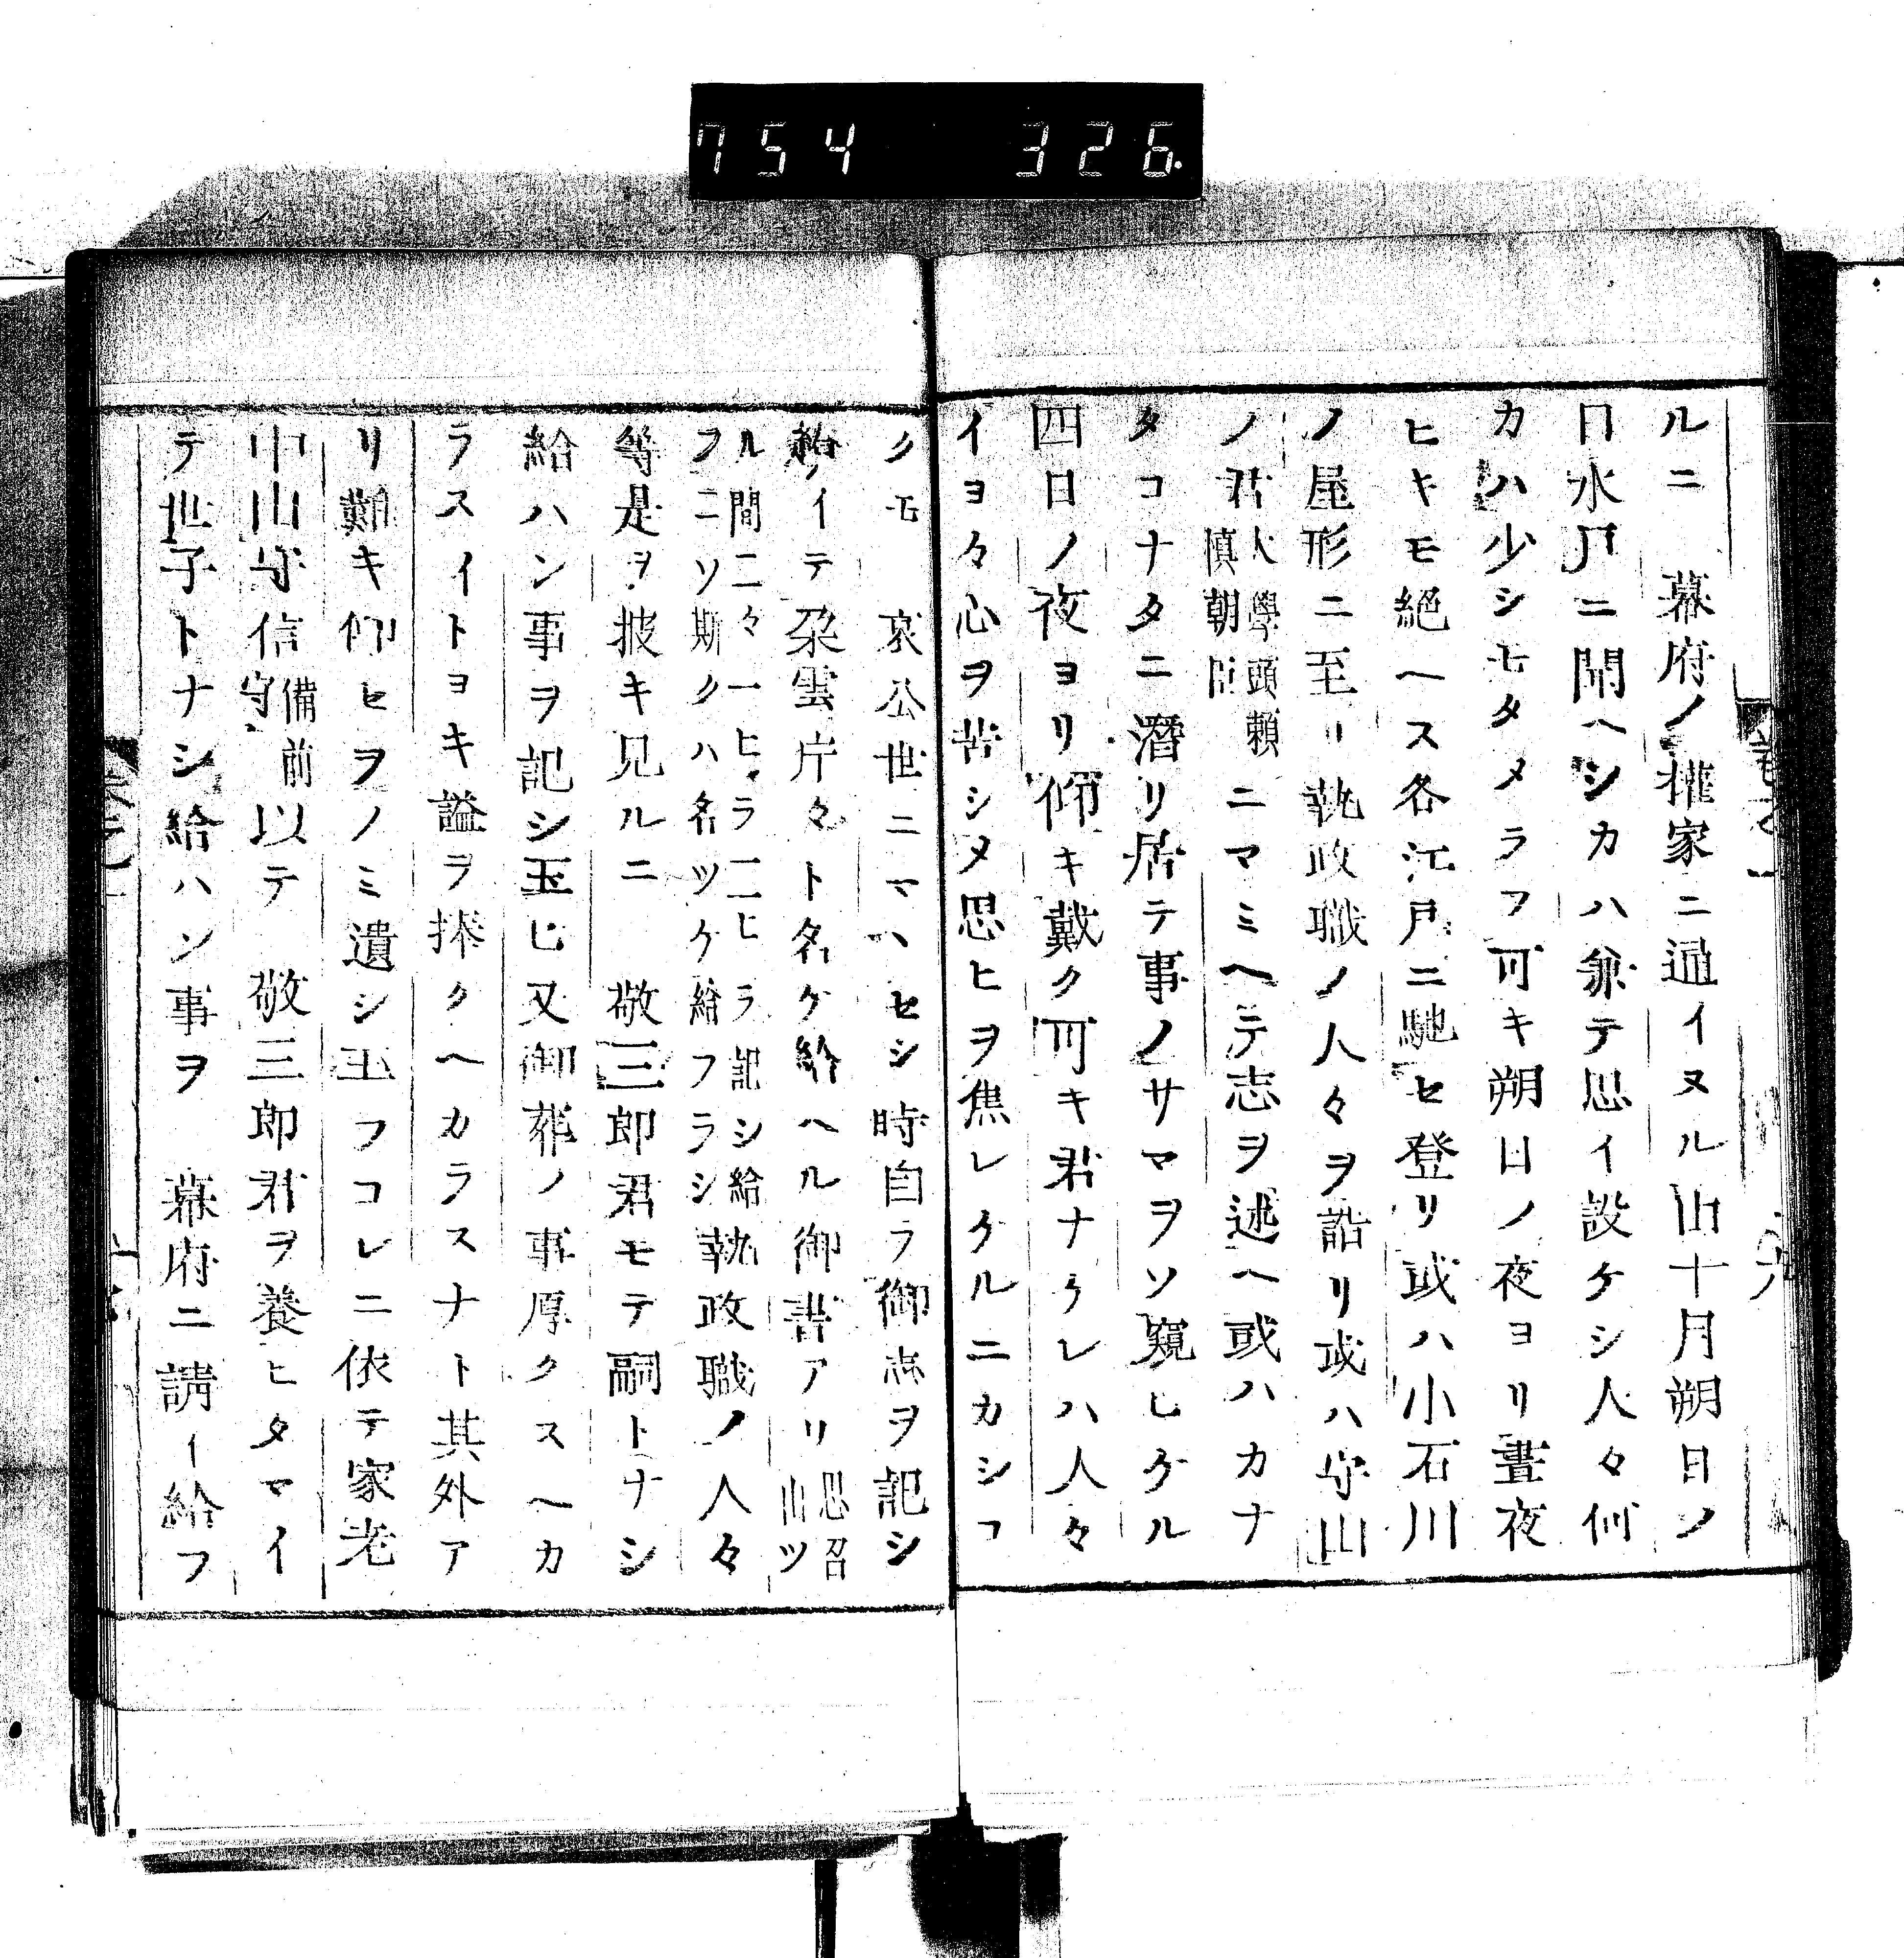 754 326
ルニ　幕府ノ權家ニ通イヌル由十月朔日ノ
日水戸ニ聞ヘシカハ兼テ思イ設ケシ人々何
カハ少シモタメラフ可キ朔日ノ夜ヨリ晝夜
ヒキモ絕ヘス各江戸ニ馳セ登リ或ハ小石川
ノ屋形ニ至リ執政職ノ人々ヲ詣リ或ハ守山
ノ君大學頭頼愼朝臣ニマミヘテ志ヲ述ヘ或ハカナ
タコナタニ潛リ居テ事ノサマヲソ窺ヒケル
四日ノ夜ヨリ仰キ戴ク可キ君ナケレハ人々
イヨ々心ヲ苦シメ思ヒヲ焦レケルニカシコ
クモ　哀公世ニマハセシ時自ラ御志ヲ記シ
給イテ朶雲片々ト名ケ給ヘル御書アリ思召出ツ
ル間二々一ヒラ二ヒラ記シ給フニソ斯クハ名ツケ給フラシ執政職ノ人々
等是ヲ披キ見ルニ　敬三郎君モテ嗣トナシ
給ハン事ヲ記シ玉ヒ又御葬ノ事厚クスヘカ
ラスイトヨキ謚ヲ捧クヘカラスナト其外ア
リ難キ仰セヲノミ遺シ玉フコレニ依テ家老
中山守信備前守以テ　敬三郎君ヲ養ヒタマイ
テ世子トナシ給ハン事ヲ　幕府ニ請イ給フ